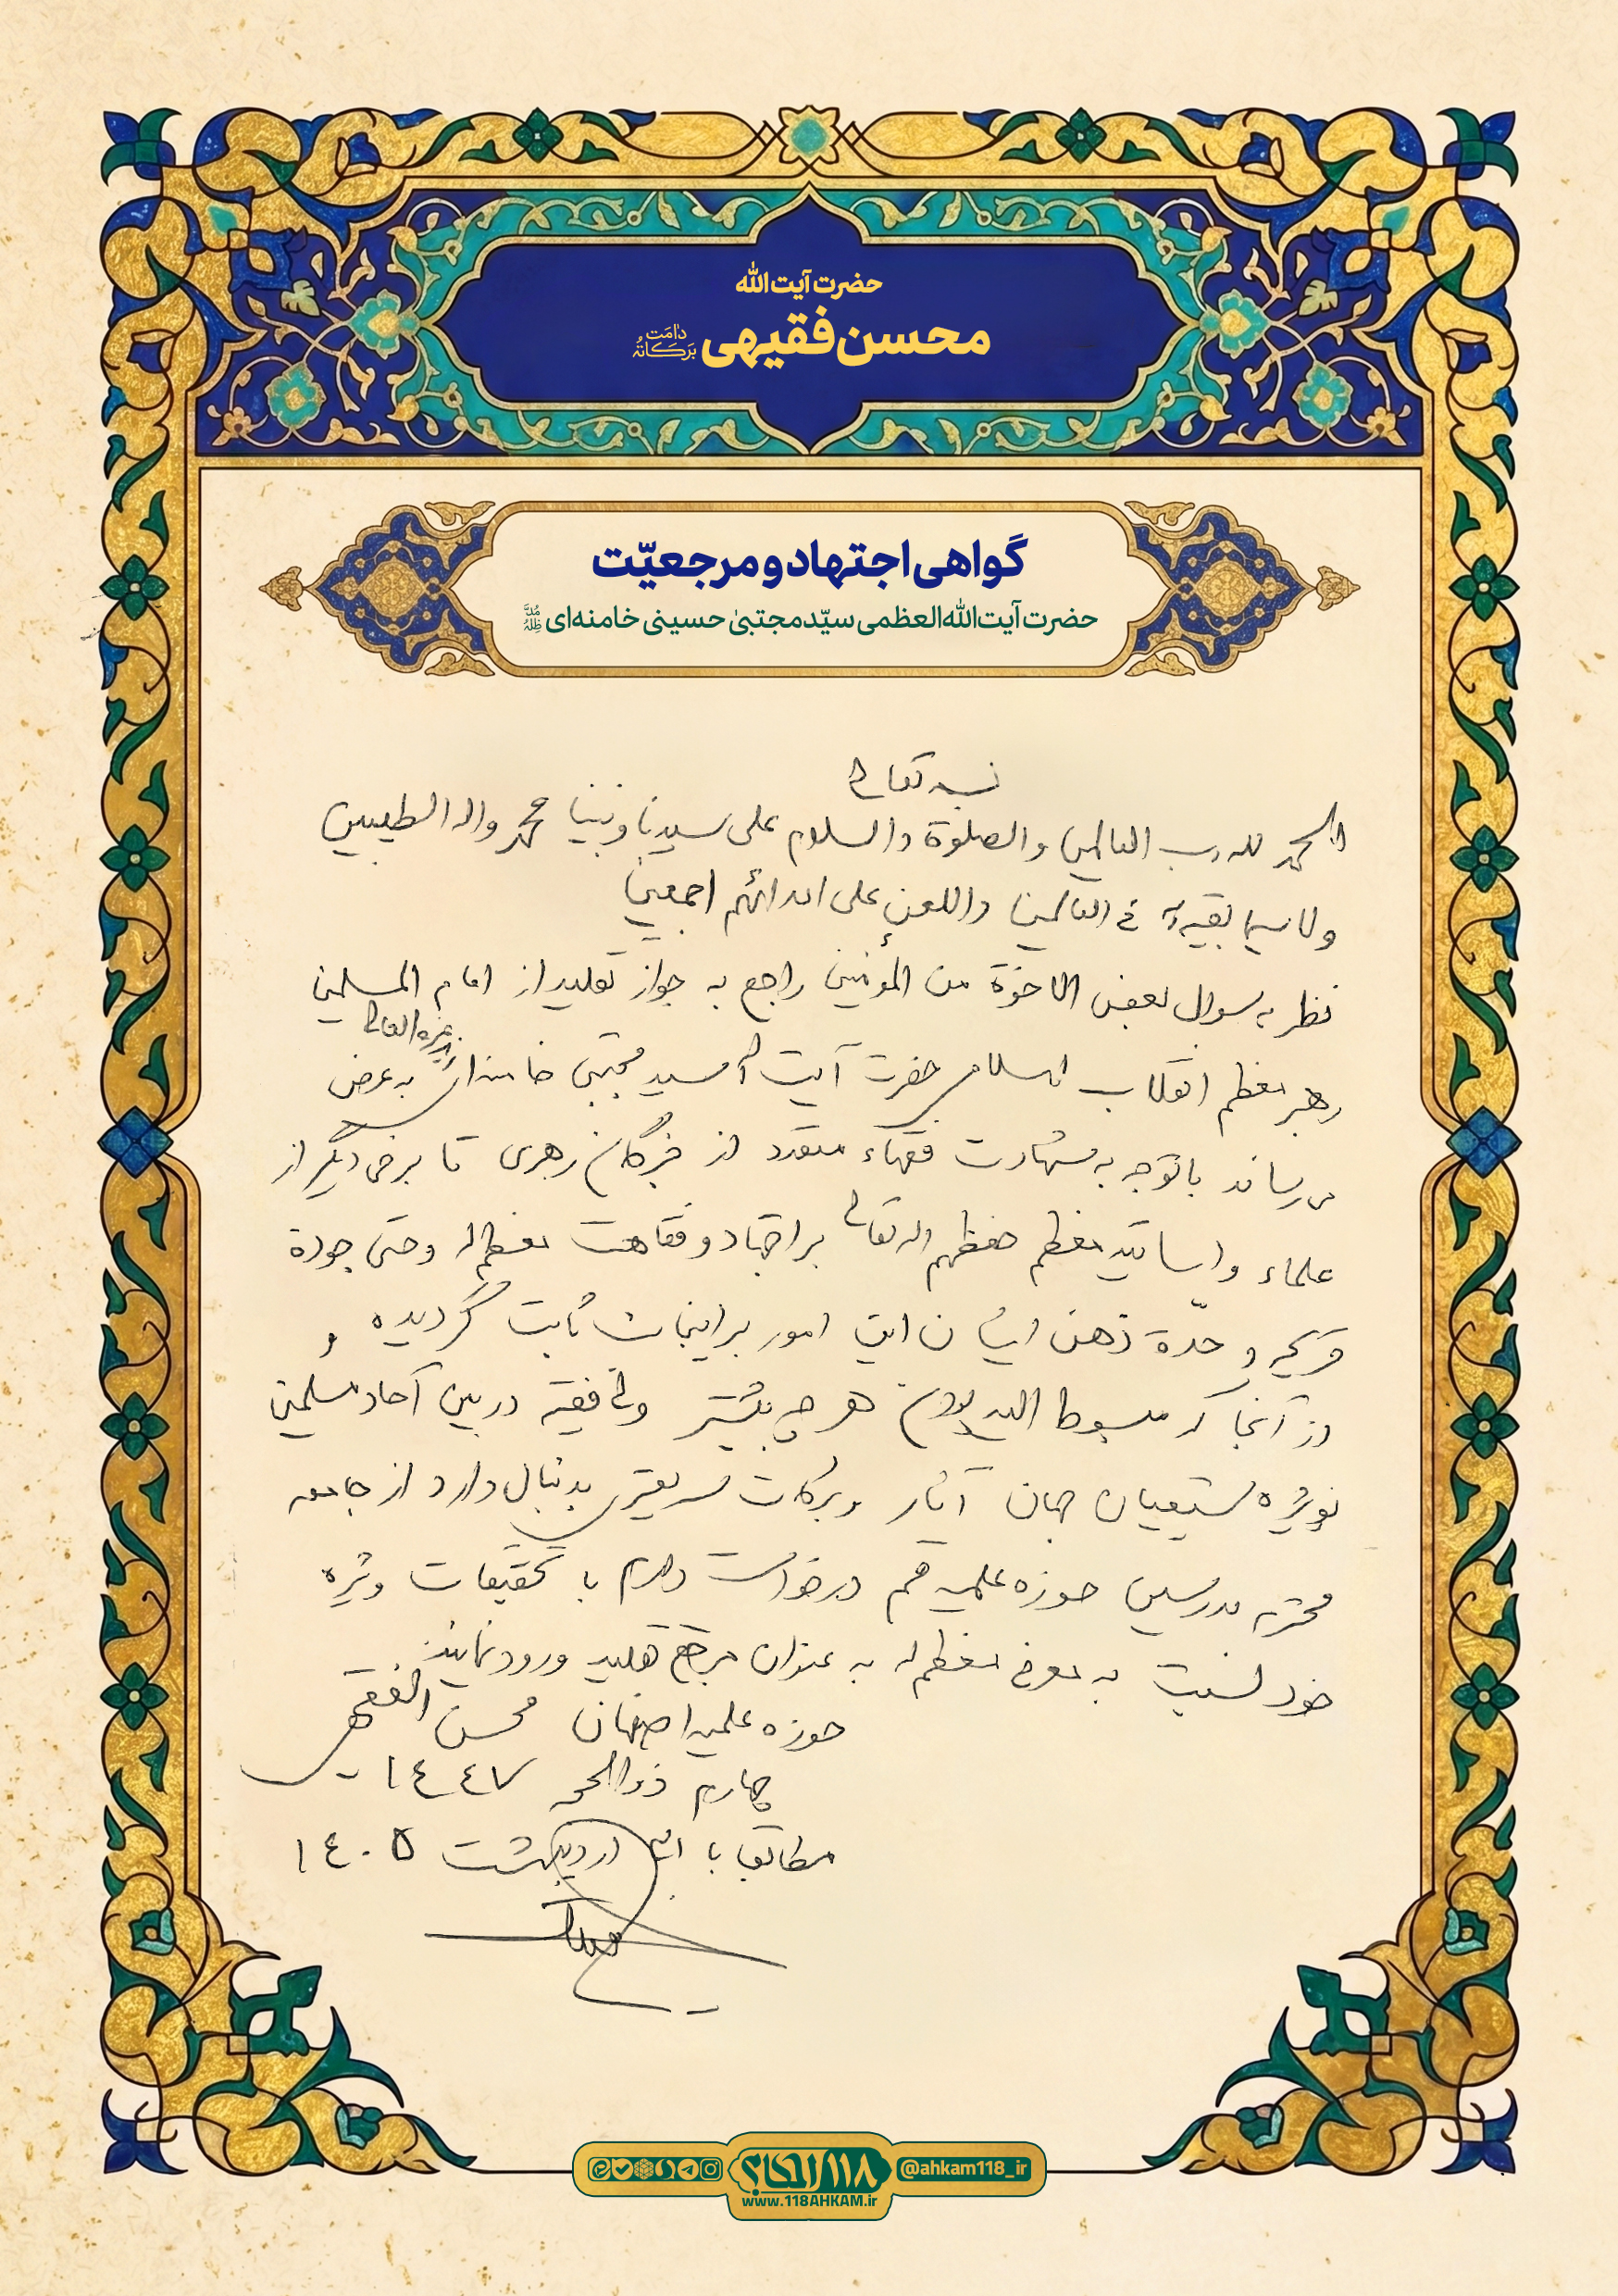 حضرت آیت الله
محسن فقیهی دامَت بَرَکاتُهُ
گواهی اجتهاد و مرجعیّت
حضرت آیت‌الله‌العظمی سیّد مجتبیٰ حسینی خامنه‌ای مُدَّ ظِلُّهُ
بسمه تعالی
الحمد لله رب العالمین و الصلوة والسلام علی سیدنا و نبینا محمد واله الطیبین
ولا سیما بقیة الله فی العالمین واللعن علی اعدائهم اجمعین
نظر به سوال بعض الاخوة من المؤمنین راجع به جواز تقلید از امام المسلمین
رهبر معظم انقلاب اسلامی حضرت آیت الله سید مجتبی خامنه‌ای به عرض
می رساند با توجه به شهادت فقهاء متعدد از خبرگان رهبری تا برخی دیگر از
علماء و اساتید معظم حفظهم الله تعالی بر اجتهاد و فقاهت معظم له و حتی جودة
قریحه و حدّة ذهن ایشان این امور بر اینجانب ثابت گردیده و
از آنجا که مبسوط الید بودن هر چه بیشتر ولی فقیه در بین آحاد مسلمین
بویژه شیعیان جهان آثار و برکات بدنبال دارد از جامعه
محترم مدرسین حوزه علمیه قم درخواست دارم با تحقیقات ویژه
خود نسبت به معرفی معظم له به عنوان مرجع تقلید ورود نمایند
حوزه علمیه اصفهان محسن الفقیهی
چهارم ذوالحجه ١٤٤٧
مطابق با اردیبهشت ١٤٠٥
۱۱۸ احکام
@ahkam118_ir
www.118AHKAM.ir